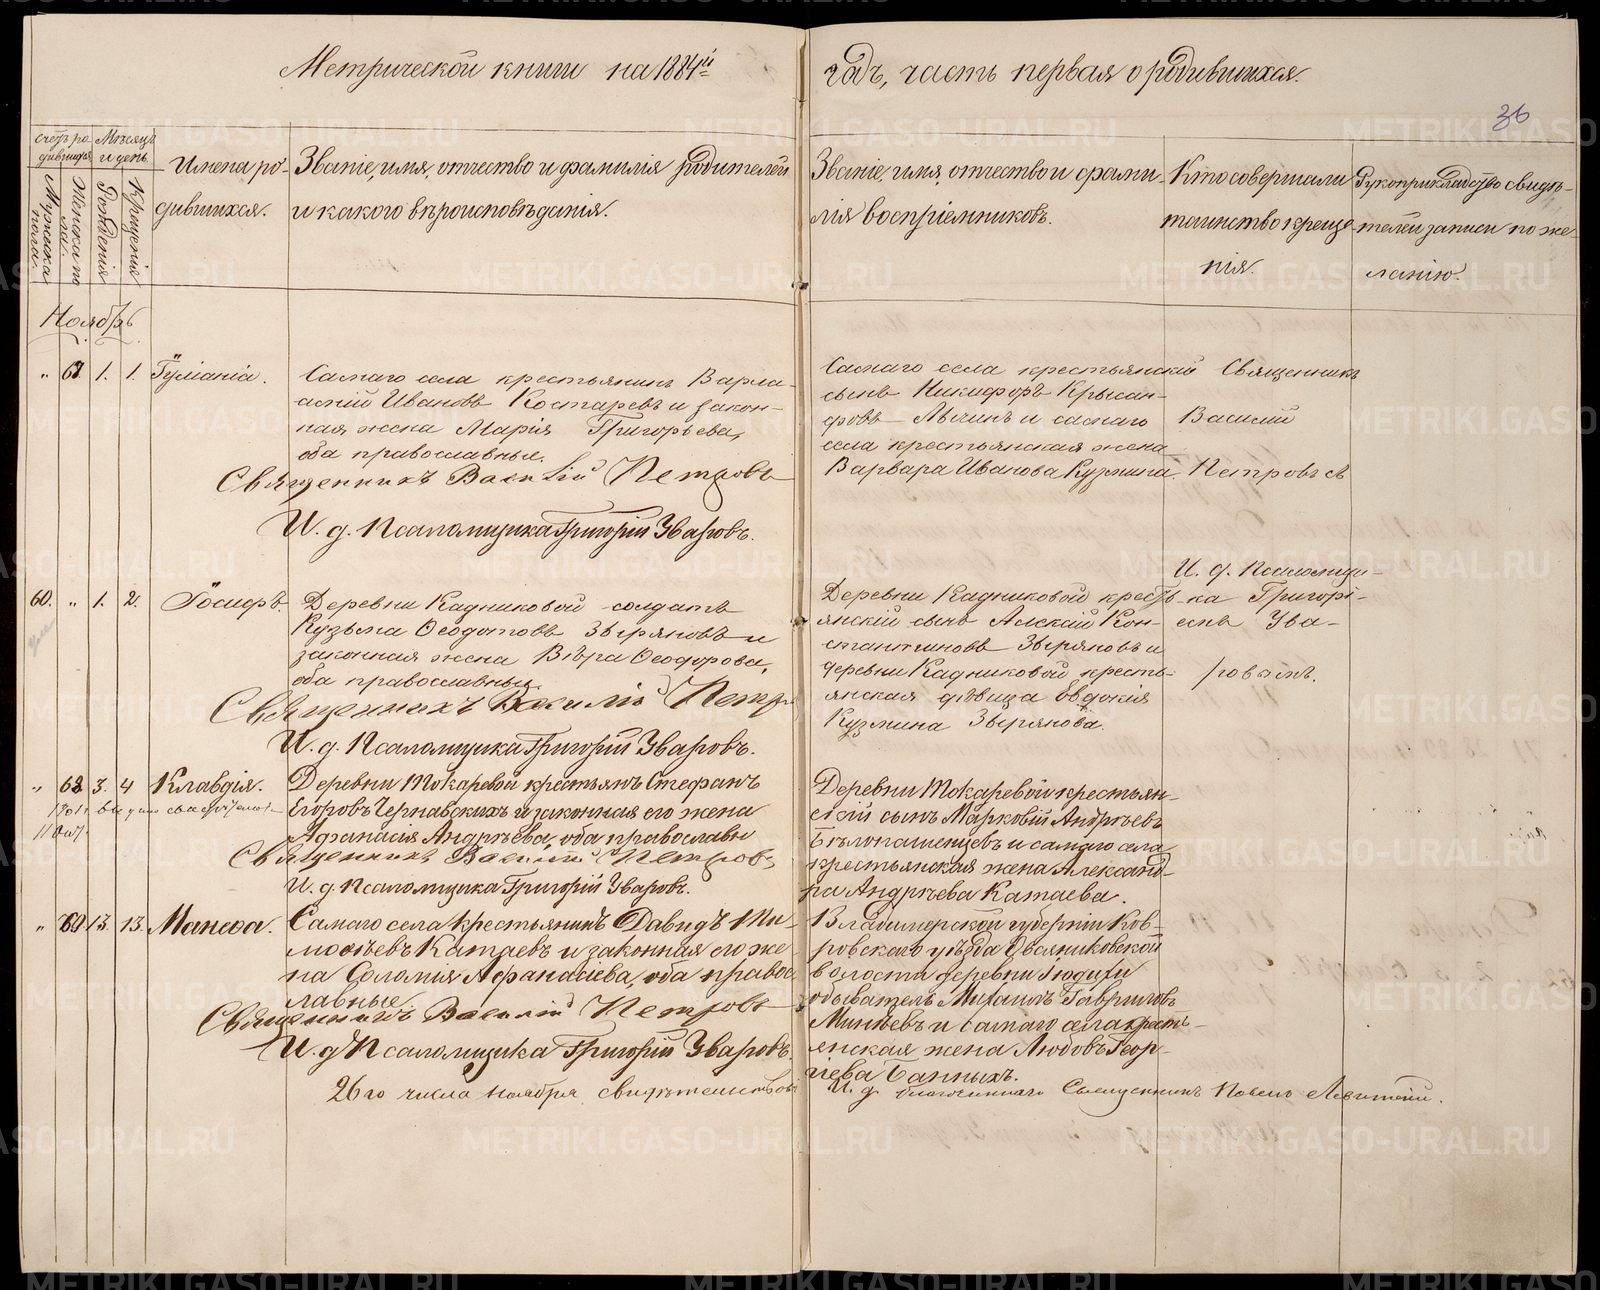 Метрической книги на 1884й
годъ, часть первая о родившихся.
36
Счетъ ро-
дившихся
Мужеска
пола.
Женска по-
ла.
Мѣсяцъ
и день
Рожденія
Крещенія
Имена ро-
дившихся.
Званіе, имя, отчество и фамилія родителей
и какого вѣроисповѣданія.
Званіе, имя, отчество и фами-
лія воспріемниковъ.
Кто совершалъ
таинство креще-
нія.
Рукоприкладство свидѣ-
телей записи по же-
ланію.
Ноябрь
„ 1. 1. Іуліанія.
Самаго села крестьянинъ Варла-
амій Ивановъ Костаревъ и закон-
ная жена Марія Григорьева,
оба православные.
Священникъ Василій Петровъ
И. д. Псаломщика Григорій Уваровъ.
Самаго села крестьянскій
сынъ Никифоръ Крысан-
фовъ и самаго
села крестьянская жена
Варвара Иванова Кузмина
Священникъ
Василій
Петровъ съ
И. д. Псаломщи-
ка Григорі-
емъ Ува-
ровымъ.
60. „ 1. 2. Іосифъ.
Деревни Кадниковой солдатъ
Кузьма Ѳеодотовъ Зыряновъ и
законная жена Вѣра Ѳеодорова,
оба православные.
Священникъ Василій Петр
И. д. Псаломщика Григорій Уваровъ.
Деревни Кадниковой кресть-
янскій сынъ Алексій Кон-
стантиновъ Зыряновъ и
деревни Кадниковой кресть-
янская дѣвица Евдокія
Кузмина Зырянова.
„ 3. 4 Клавдія.
Деревни Токаревой крестьянъ Стефанъ
Егоровъ Чернавскихъ и законная его жена
Афанасія Андрѣева, оба православны
Священникъ Василій Петровъ
И. д. Псаломщика Григорій Уваровъ.
Деревни Токаревой крестьян-
скій сынъ Марковій Андрѣевъ
Бѣлопашенцевъ и самаго села
крестьянская жена Александ-
ра Андрѣева Катаева.
„ 13. 13. Манефа.
Самаго села крестьянинъ Давидъ Ти-
моѳѣевъ Катаевъ и законная его же-
на Соломія Афанасіева, оба правос-
лавные.
Священникъ Василій Петровъ
И. д. Псаломщика Григорій Уваровъ.
Владимирской губерніи Ков-
ровскаго уѣзда Овсяниковской
волости деревни
обыватель Михаилъ Гавриловъ
Минѣевъ и самаго села кресть-
янская жена Любовь Геор-
гіева Банныхъ.
26го числа Ноября свидѣтельствов
И. д. благочиннаго Священникъ Павелъ Левитскій.